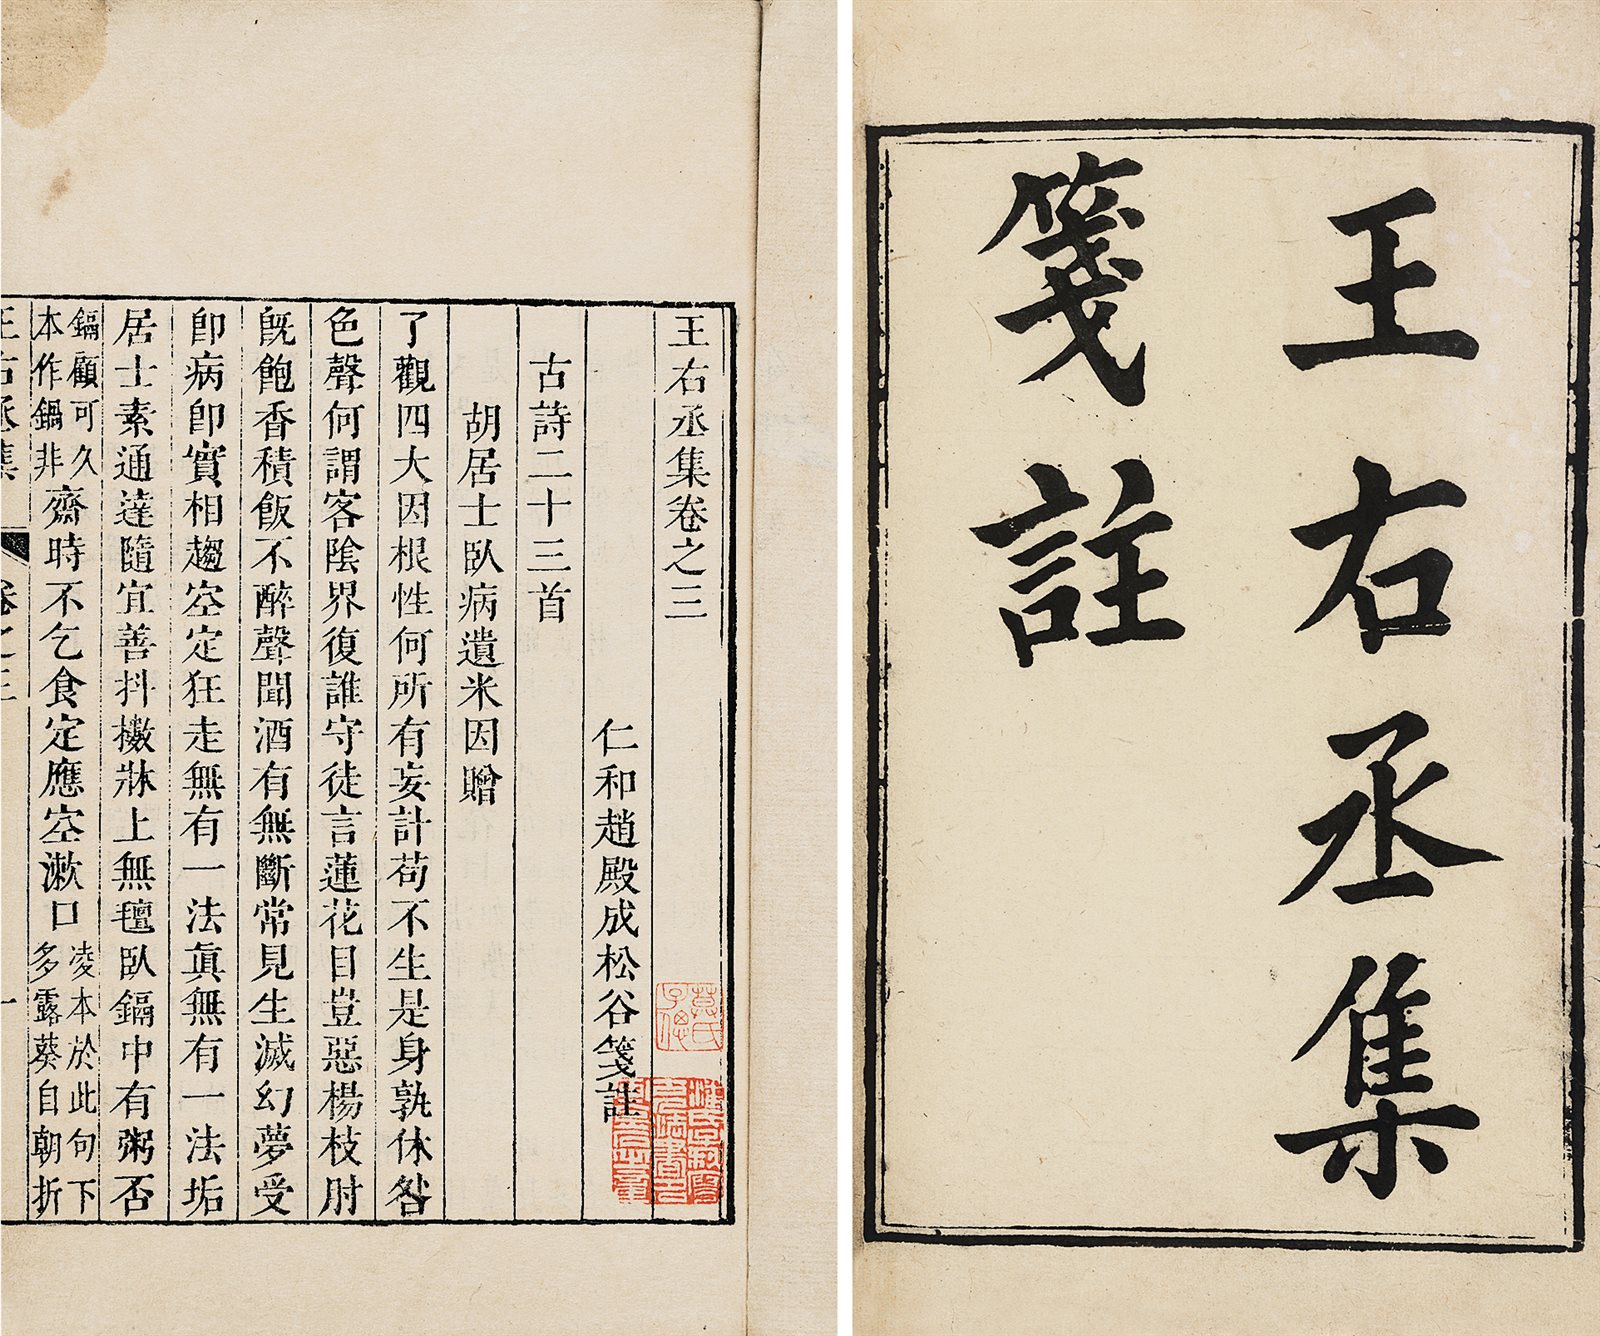 王右丞集
箋註
王右丞集卷之三
仁和趙殿成松谷箋註
古詩二十三首
胡居士臥病遺米因贈
了觀四大因根性何所有妄計苟不生是身孰休咎
色聲何謂客陰界復誰守徒言蓮花目豈惡楊枝肘
旣飽香積飯不醉聲聞酒有無斷常見生滅幻夢受
卽病卽實相趨空定狂走無有一法眞無有一法垢
居士素通達隨宜善抖擻牀上無氈臥鎘中有粥否
鎘顧可久本作鍋非齋時不乞食定應空漱口凌本於此句下多露葵自朝折
王右丞集 卷之三 一
莫氏子偲